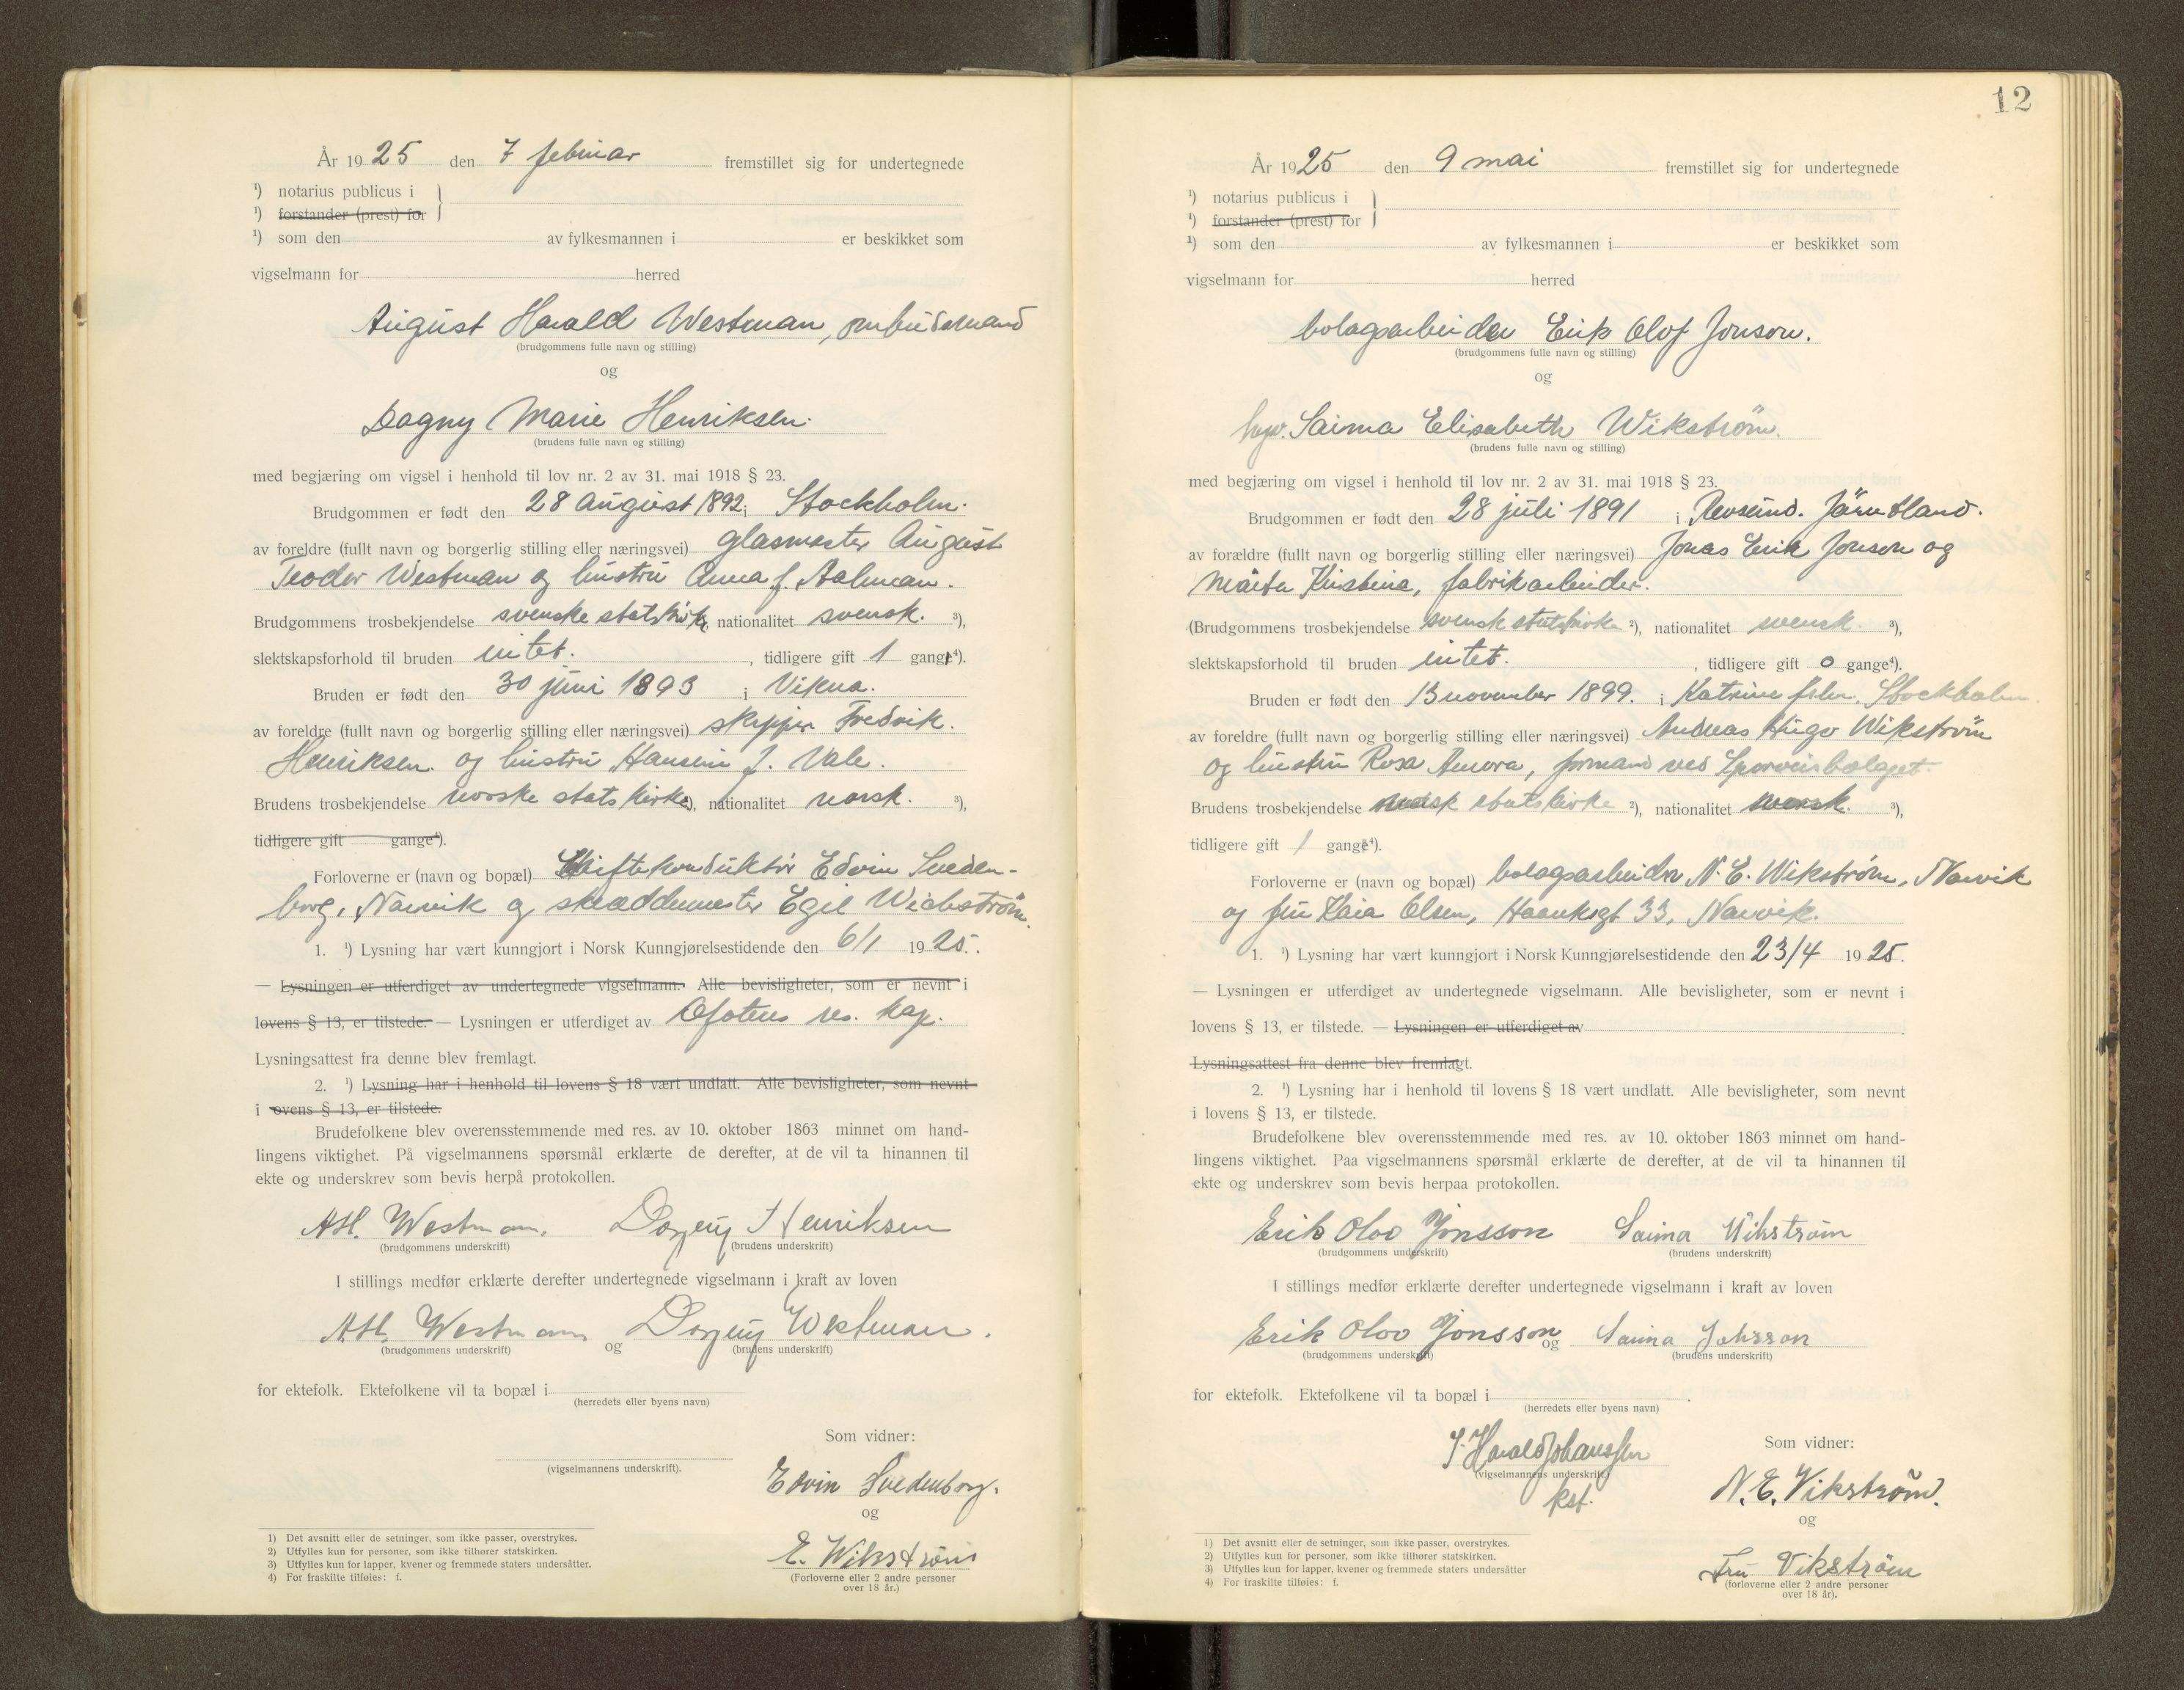 År 1925 den 7 februar fremstillet sig for undertegnede
¹) notarius publicus i
¹) forstander (prest) for
¹) som den av fylkesmannen i er beskikket som
vigselmann for herred
August Harald Westman, ombudsmand
(brudgommens fulle navn og stilling)
og
Dagny Marie Henriksen.
(brudens fulle navn og stilling)
med begjæring om vigsel i henhold til lov nr. 2 av 31. mai 1918 § 23.
Brudgommen er født den 28 august 1892 i Stockholm.
av foreldre (fullt navn og borgerlig stilling eller næringsvei) glasmester August
Teodor Westman og hustru Anna f. Aalman.
Brudgommens trosbekjendelse svenske statskirke, nationalitet svensk. ³),
slektskapsforhold til bruden intet. , tidligere gift 1 gang⁴).
Bruden er født den 30 juni 1893 i Vikna.
av foreldre (fullt navn og borgerlig stilling eller næringsvei) skipper Fredrik
Henriksen og hustru Hansine f. Vale.
Brudens trosbekjendelse norske statskirke), nationalitet norsk. ³),
tidligere gift gange⁴).
Forloverne er (navn og bopæl) Skiftekonduktør Edvin Sveden-
borg, Narvik og skræddermester Egil Wickstrøm.
1. ¹) Lysning har vært kunngjort i Norsk Kunngjørelsestidende den 6/1 1925.
— Lysningen er utferdiget av undertegnede vigselmann. Alle bevisligheter, som er nevnt i
lovens § 13, er tilstede. — Lysningen er utferdiget av Ofotens res. kap.
Lysningsattest fra denne blev fremlagt.
2. ¹) Lysning har i henhold til lovens § 18 vært undlatt. Alle bevisligheter, som nevnt
i lovens § 13, er tilstede.
Brudefolkene blev overensstemmende med res. av 10. oktober 1863 minnet om hand-
lingens viktighet. På vigselmannens spørsmål erklærte de derefter, at de vil ta hinannen til
ekte og underskrev som bevis herpå protokollen.
AH. Westman. Dagny Henriksen
(brudgommens underskrift) (brudens underskrift)
I stillings medfør erklærte derefter undertegnede vigselmann i kraft av loven
AH. Westman og Dagny Westman.
(brudgommens underskrift) (brudens underskrift)
for ektefolk. Ektefolkene vil ta bopæl i
(herredets eller byens navn)
Som vidner:
(vigselmannens underskrift).
Edvin Svedenborg.
og
E. Wikstrøm
(Forloverne eller 2 andre personer
over 18 år.)
1) Det avsnitt eller de setninger, som ikke passer, overstrykes.
2) Utfylles kun for personer, som ikke tilhører statskirken.
3) Utfylles kun for lapper, kvener og fremmede staters undersåtter.
4) For fraskilte tilføies: f.
12
År 1925 den 9 mai fremstillet sig for undertegnede
¹) notarius publicus i
¹) forstander (prest) for
¹) som den av fylkesmannen i er beskikket som
vigselmann for herred
bolagsarbeider Erik Olof Jonson.
(brudgommens fulle navn og stilling)
og
Saima Elisabeth Wikström.
(brudens fulle navn og stilling)
med begjæring om vigsel i henhold til lov nr. 2 av 31. mai 1918 § 23.
Brudgommen er født den 28 juli 1891 i Revsund. Jämtland.
av forældre (fullt navn og borgerlig stilling eller næringsvei) Jonas Erik Jonson og
Märta Kristina, fabrikarbeider.
(Brudgommens trosbekjendelse svensk statskirke ²), nationalitet svensk. ³),
slektskapsforhold til bruden intet. , tidligere gift 0 gange⁴).
Bruden er født den 13 november 1899. i Katrine Stockholm
av foreldre (fullt navn og borgerlig stilling eller næringsvei) Andreas Hugo Wikström
og hustru Rosa Amora, formand ved Sporveisbolaget.
Brudens trosbekjendelse statskirke ²), nationalitet ³),
tidligere gift 1 gang⁴).
Forloverne er (navn og bopæl) bolagsarbeider N. E. Wikstrøm, Narvik
og fru Kaia Olsen, Haaviksgt 33, Narvik.
1. ¹) Lysning har vært kunngjort i Norsk Kunngjørelsestidende den 23/4 1925.
— Lysningen er utferdiget av undertegnede vigselmann. Alle bevisligheter, som er nevnt i
lovens § 13, er tilstede. — Lysningen er utferdiget av
Lysningsattest fra denne blev fremlagt.
2. ¹) Lysning har i henhold til lovens § 18 vært undlatt. Alle bevisligheter, som nevnt
i lovens § 13, er tilstede.
Brudefolkene blev overensstemmende med res. av 10. oktober 1863 minnet om hand-
lingens viktighet. Paa vigselmannens spørsmål erklærte de derefter, at de vil ta hinannen til
ekte og underskrev som bevis herpaa protokollen.
Erik Olov Jonsson Saima Wikström
(brudgommens underskrift) (brudens underskrift)
I stillings medfør erklærte derefter undertegnede vigselmann i kraft av loven
Erik Olov Jonsson og Saima Johsson
(brudgommens underskrift) (brudens underskrift)
for ektefolk. Ektefolkene vil ta bopæl i .
(herredets eller byens navn)
Harald Johanssen Som vidner:
(vigselmannens underskrift.)
kst.
N. E. Vikström.
og
Fru Vikström
(forloverne eller 2 andre personer
over 18 år).
1) Det avsnitt eller de setninger, som ikke passer, overstrykes.
2) Utfylles kun for personer, som ikke tilhører statskirken.
3) Utfylles kun for lapper, kvener og fremmede staters undersåtter
4) For fraskilte tilføies: f.